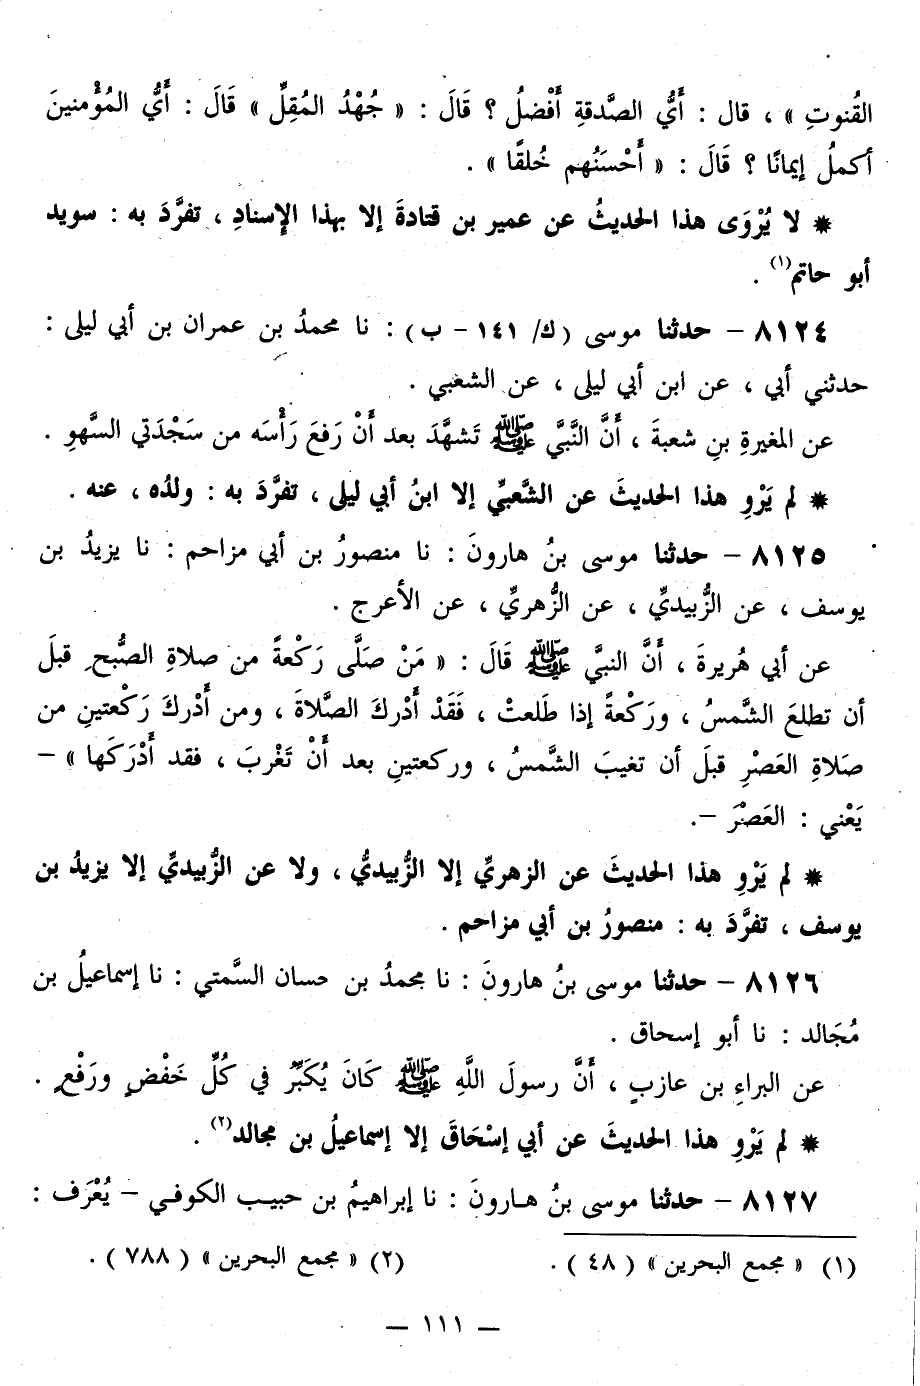 القُنوتِ » ، قال : أَيُّ الصَّدقةِ أَفْضلُ ؟ قَالَ : « جُهْدُ المُقِلِّ » قَالَ : أَيُّ المُؤْمنينَ
أكملُ إيمانًا ؟ قَالَ : « أَحْسَنُهم خُلقًا » .
* لا يُرْوَى هذا الحديثُ عن عمير بن قتادةَ إلا بهذا الإسنادِ ، تفرَّدَ به : سويد
أبو حاتم(١) .
٨١٢٤ – حدثنا موسى (ك/ ١٤١ – ب) : نا محمدُ بن عمران بن أبي ليلى :
حدثني أبي ، عن ابن أبي ليلى ، عن الشعبي .
عن المغيرةِ بنِ شعبةَ ، أَنَّ النَّبيَّ ﷺ تَشهَّدَ بعد أَنْ رَفعَ رَأْسَه من سَجْدَتي السَّهوِ .
* لم يَرْوِ هذا الحديثَ عن الشَّعبيِّ إلا ابنُ أبي ليلى ، تفرَّدَ به : ولدُه ، عنه .
٨١٢٥ – حدثنا موسى بنُ هارونَ : نا منصورُ بن أبي مزاحم : نا يزيدُ بن
يوسف ، عن الزُّبيديِّ ، عن الزُّهريِّ ، عن الأعرج .
عن أبي هُريرةَ ، أَنَّ النبيَّ ﷺ قَالَ : « مَنْ صَلَّى رَكْعةً من صلاةِ الصُّبحِ قبلَ
أن تطلعَ الشَّمسُ ، ورَكْعةً إذا طَلعتْ ، فَقَدْ أَدْركَ الصَّلاةَ ، ومن أَدْركَ رَكْعتينِ من
صَلاةِ العَصْرِ قبلَ أن تغيبَ الشَّمسُ ، وركعتينِ بعد أَنْ تَغْربَ ، فقد أَدْرَكَها » –
يَعْني : العَصْرَ –.
* لم يَرْوِ هذا الحديثَ عن الزهريِّ إلا الزُّبيديُّ ، ولا عن الزُّبيديِّ إلا يزيدُ بن
يوسف ، تفرَّدَ به : منصورُ بن أبي مزاحم .
٨١٢٦ – حدثنا موسى بنُ هارونَ : نا محمدُ بن حسان السَّمتي : نا إسماعيلُ بن
مُجَالد : نا أبو إسحاق .
عن البراءِ بن عازبٍ ، أَنَّ رسولَ اللَّهِ ﷺ كَانَ يُكَبِّرُ في كُلِّ خَفْضٍ ورَفْعٍ .
* لم يَرْوِ هذا الحديثَ عن أبي إسْحَاقَ إلا إسماعيلُ بن مجالد(٢) .
٨١٢٧ – حدثنا موسى بنُ هـارونَ : نا إبراهيمُ بن حبيـب الكوفـي – يُعْرَف :
(١) « مجمع البحرين » ( ٤٨ ) . (٢) « مجمع البحرين » ( ٧٨٨ ) .
— ١١١ —